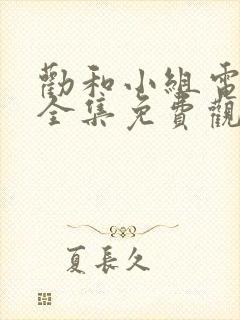 勸和小組電
全集免費觀
夏長久